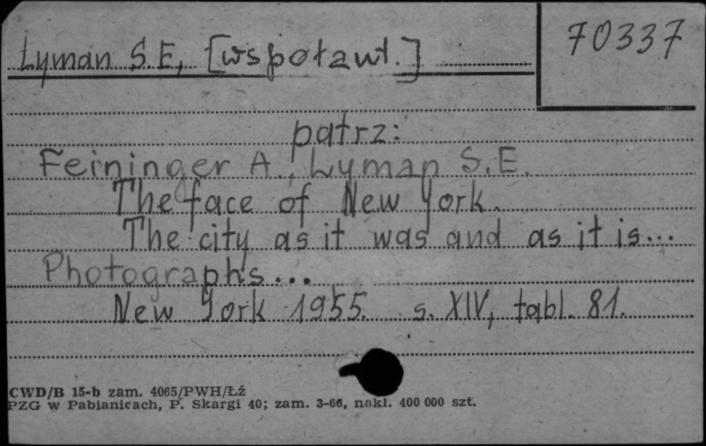 Lyman S.E, [współaut.]
70337
patrz:
Feininger A., Lyman S.E.
The face of New York.
The city as it was and as it is...
Photographs...
New York 1955. s. XIV, tabl. 81.
CWD/B 15-b zam. 4065/PWH/Łź
PZG w Pabianicach, P. Skargi 40; zam. 3-66, nakł. 400 000 szt.